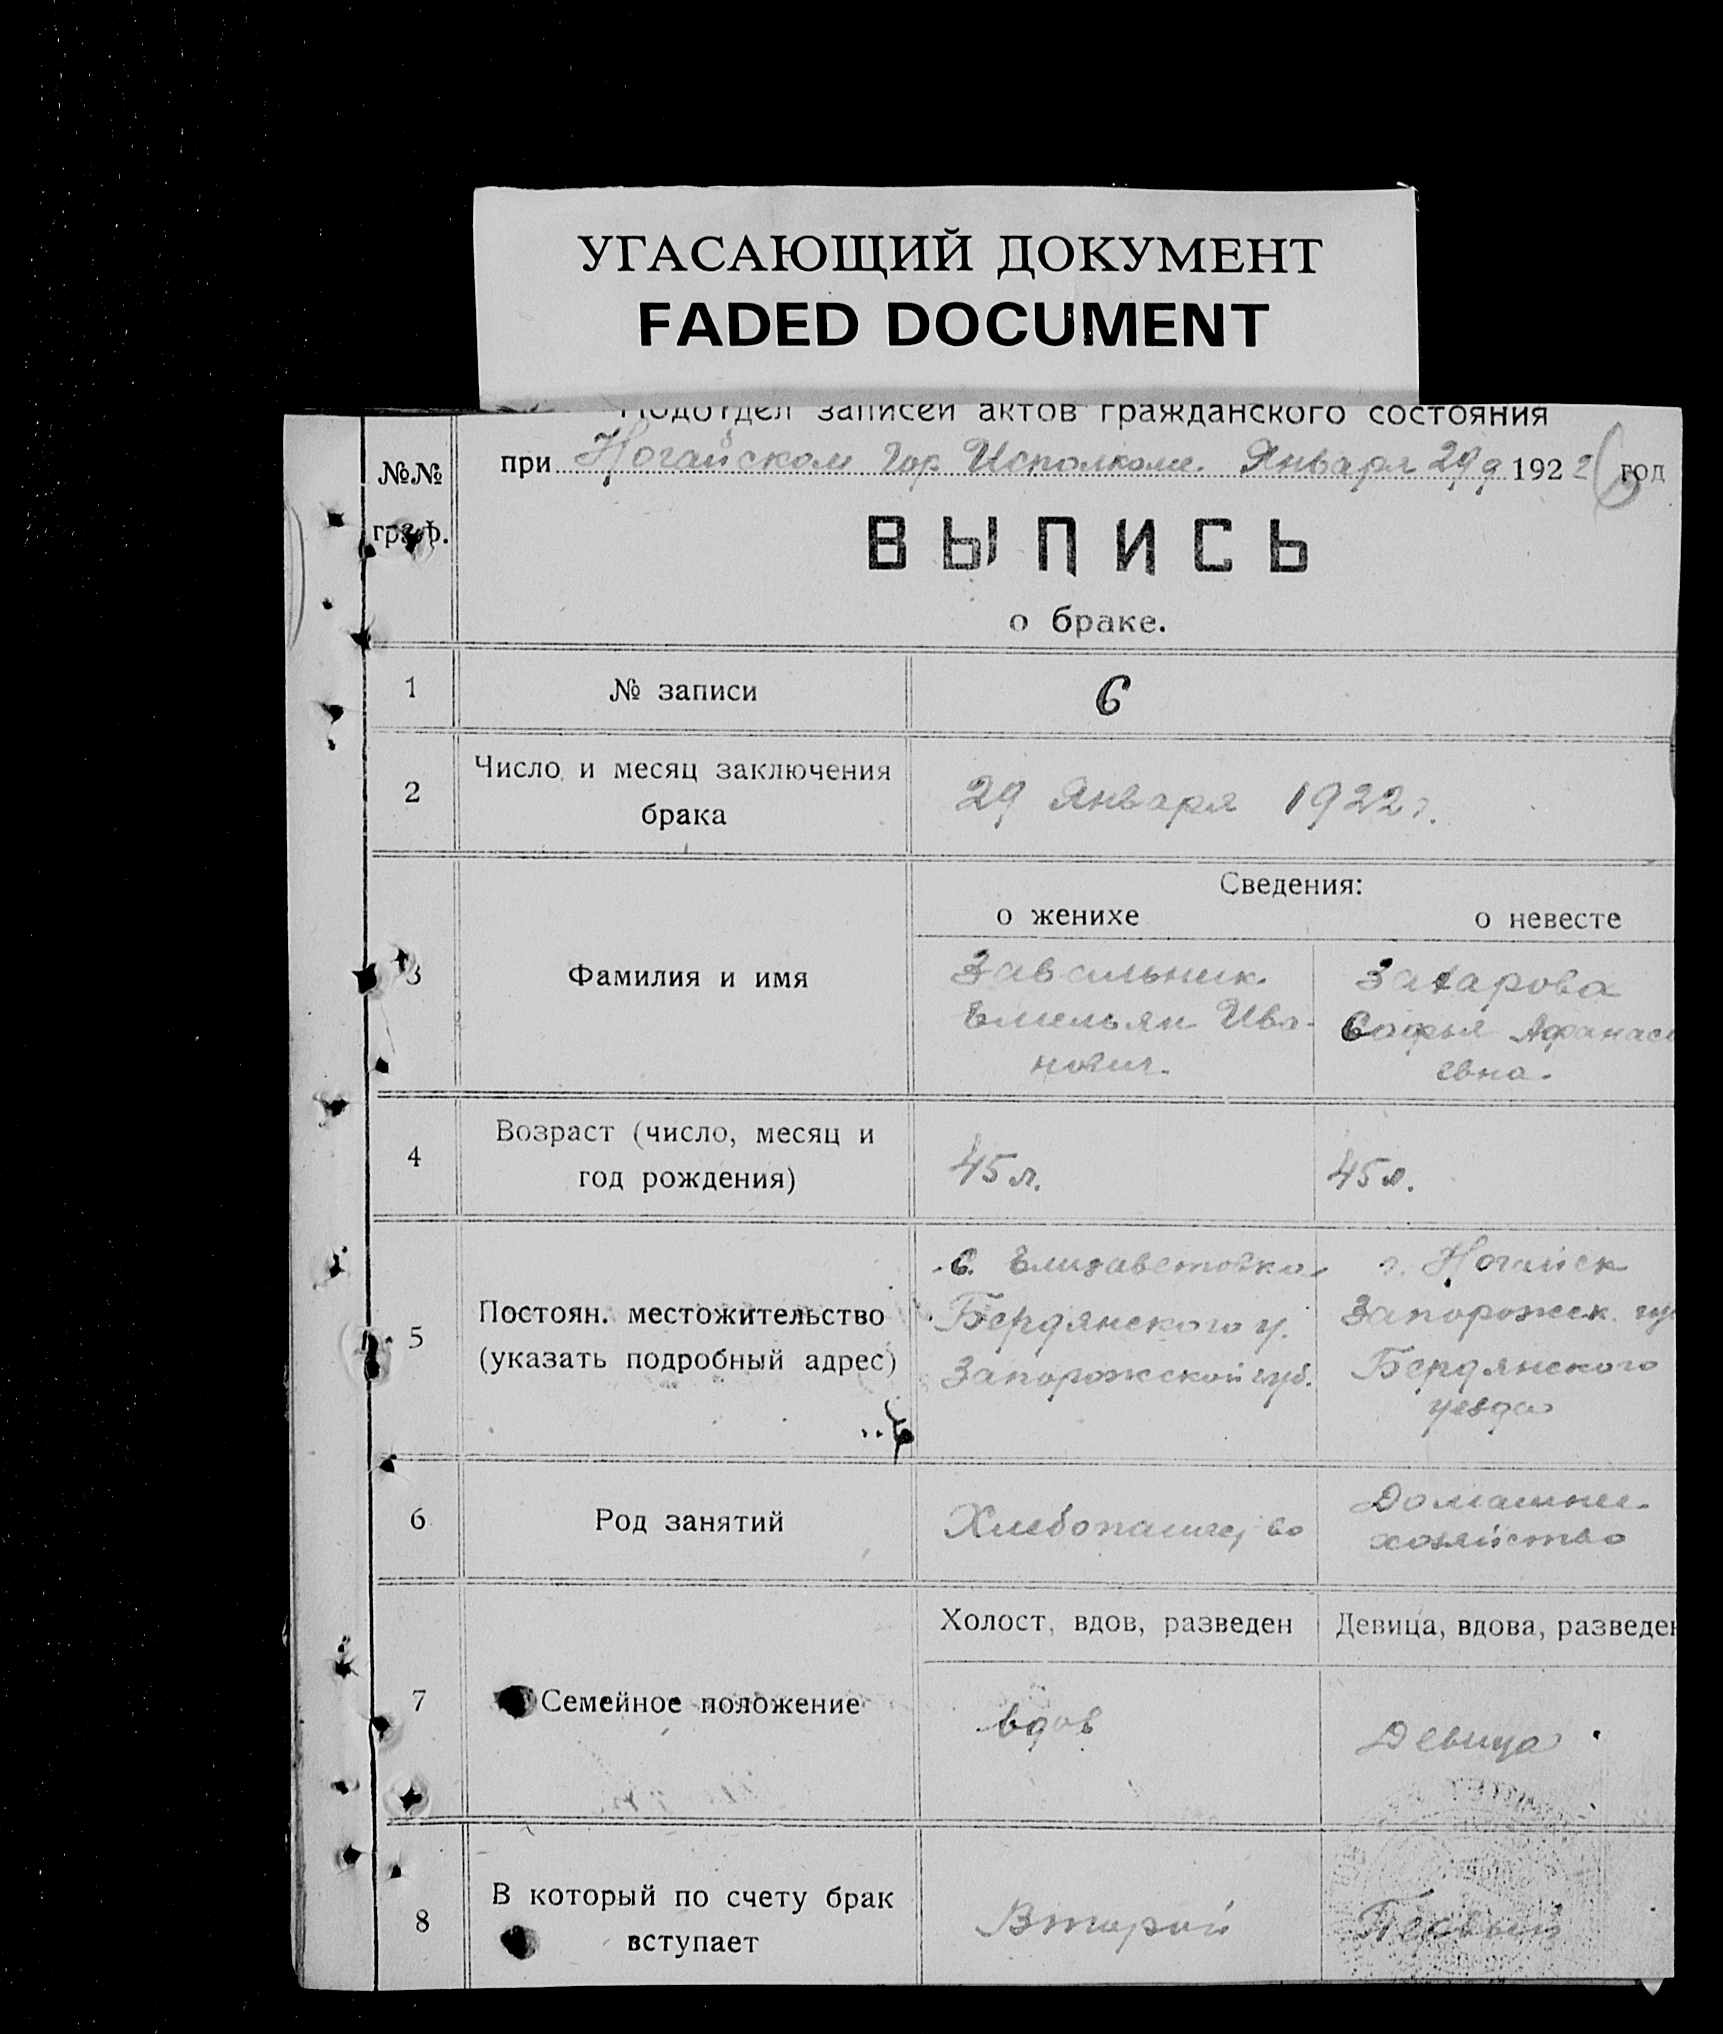 УГАСАЮЩИЙ ДОКУМЕНТ
FADED DOCUMENT
Подотдел записей актов гражданского состояния
при Ногайском Гор. Исполкоме. Января 29 д 1922 год
№№
граф.
ВЫПИСЬ
о браке.
1 № записи 6
2 Число и месяц заключения
брака
29 Января 1922 г.
Сведения:
о женихе о невесте
3 Фамилия и имя
Завсильник
Емельян Ива-
нович.
Захарова
Софья Афанась
евна.
4 Возраст (число, месяц и
год рождения)
45 л. 45 л.
5 Постоян. местожительство
(указать подробный адрес)
с. Елизаветовка
Бердянского у.
Запорожской губ.
г. Ногайск
Запорожск. гу
Бердянского
уезда
6 Род занятий
Хлебопашество
Домашнее
хозяйство
7 Семейное положение
Холост, вдов, разведен Девица, вдова, разведен
вдов Девица
8 В который по счету брак
вступает
Второй Первый